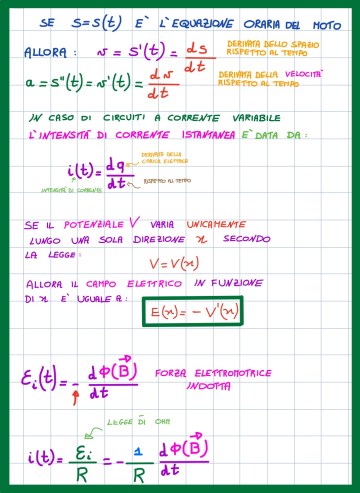 SE S=S(t) E' L'EQUAZIONE ORARIA DEL MOTO
ALLORA : v = S'(t) = ds/dt DERIVATA DELLO SPAZIO RISPETTO AL TEMPO
a = S"(t) = v'(t) = dv/dt DERIVATA DELLA VELOCITA' RISPETTO AL TEMPO
IN CASO DI CIRCUITI A CORRENTE VARIABILE
L'INTENSITÀ DI CORRENTE ISTANTANEA E' DATA DA :
i(t) = dq/dt
DERIVATA DELLA CARICA ELETTRICA
RISPETTO AL TEMPO
INTENSITÀ DI CORRENTE
SE IL POTENZIALE V VARIA UNICAMENTE
LUNGO UNA SOLA DIREZIONE x SECONDO
LA LEGGE :
V = V(x)
ALLORA IL CAMPO ELETTRICO IN FUNZIONE
DI x E' UGUALE A :
E(x) = - V'(x)
Ɛi(t) = - dΦ(B⃗)/dt FORZA ELETTROMOTRICE INDOTTA
LEGGE DI OHM
i(t) = Ɛi/R = - 1/R dΦ(B⃗)/dt